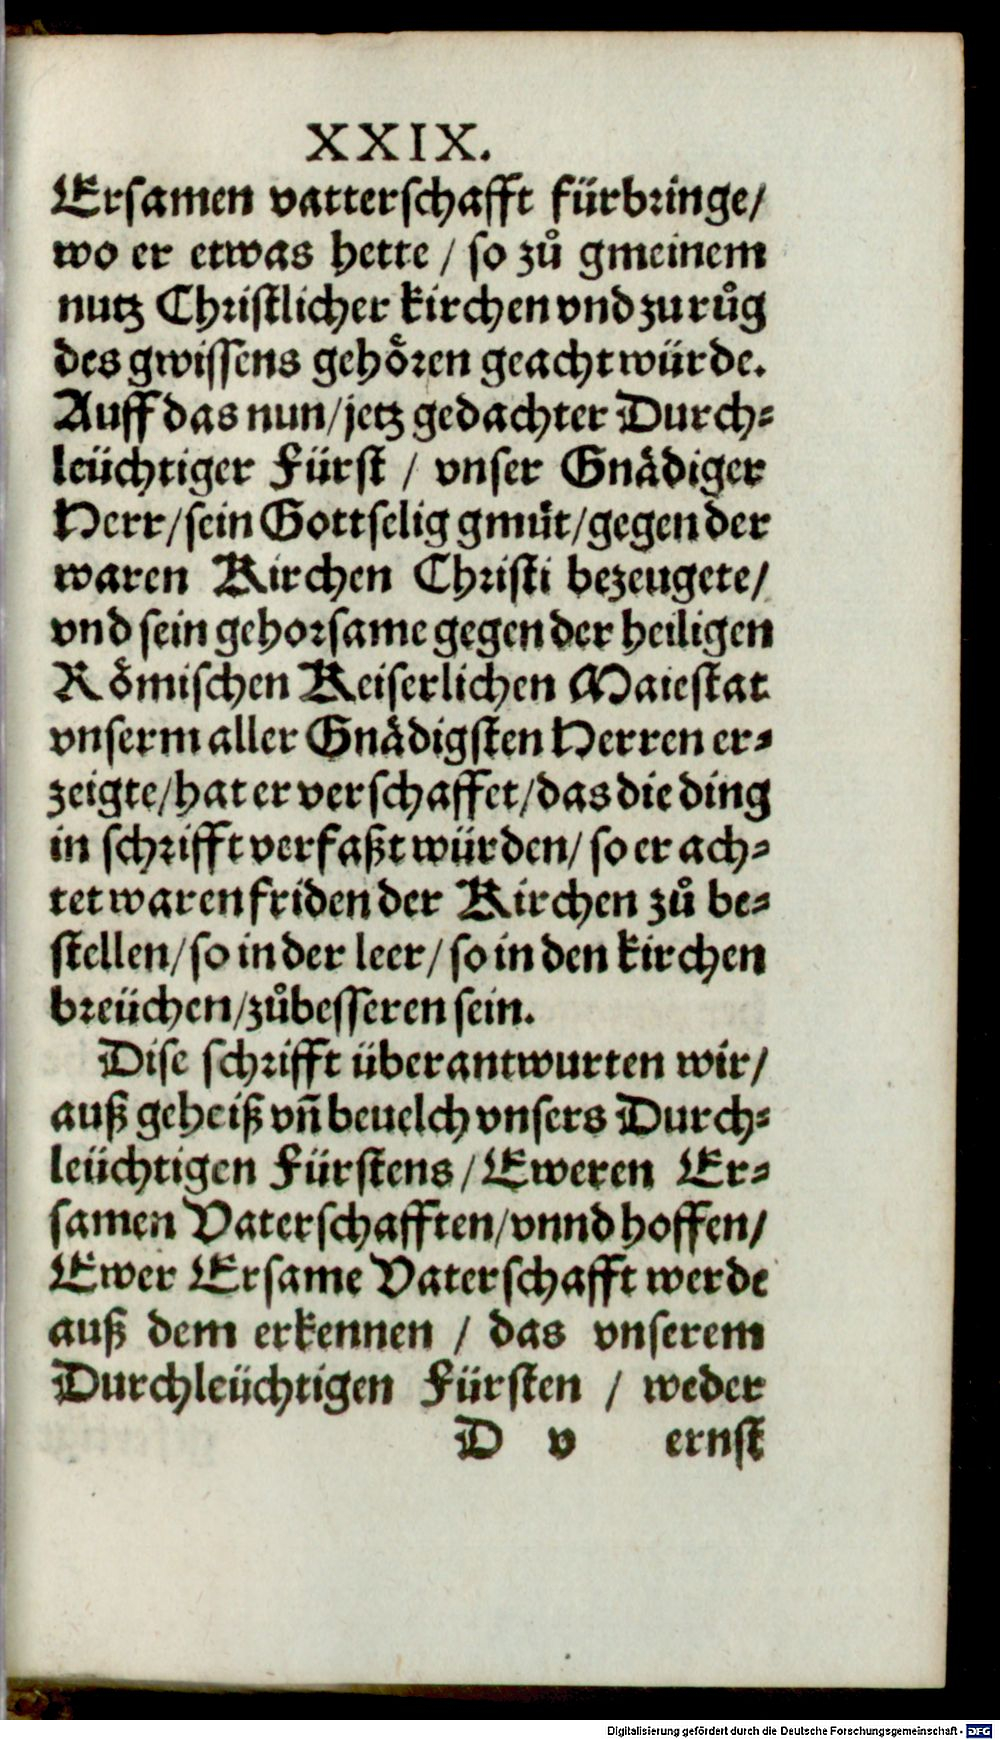 XXIX.
Ersamen vatterschafft fürbringe/
wo er etwas hette / so zů gmeinem
nutz Christlicher kirchen vnd zu růg
des gwissens gehoͤren geacht würde.
Auff das nun/jetz gedachter Durch-
leüchtiger Fürst / vnser Gnaͤdiger
Herr/sein Gottselig gmuͤt/gegen der
waren Kirchen Christi bezeugete/
vnd sein gehorsame gegen der heiligen
Roͤmischen Keiserlichen Maiestat
vnserm aller Gnaͤdigsten Herren er-
zeigte/hat er verschaffet/das die ding
in schrifft verfaßt würden/ so er ach-
tet waren friden der Kirchen zů be-
stellen/so in der leer/so in den kirchen
breüchen/zůbesseren sein.
Dise schrifft überantwurten wir/
auß geheiß vñ beuelch vnsers Durch-
leüchtigen Fürstens/Eweren Er-
samen Vaterschafften/vnnd hoffen/
Ewer Ersame Vaterschafft werde
auß dem erkennen / das vnserem
Durchleüchtigen Fürsten / weder
D v ernst
Digitalisierung gefördert durch die Deutsche Forschungsgemeinschaft - DFG